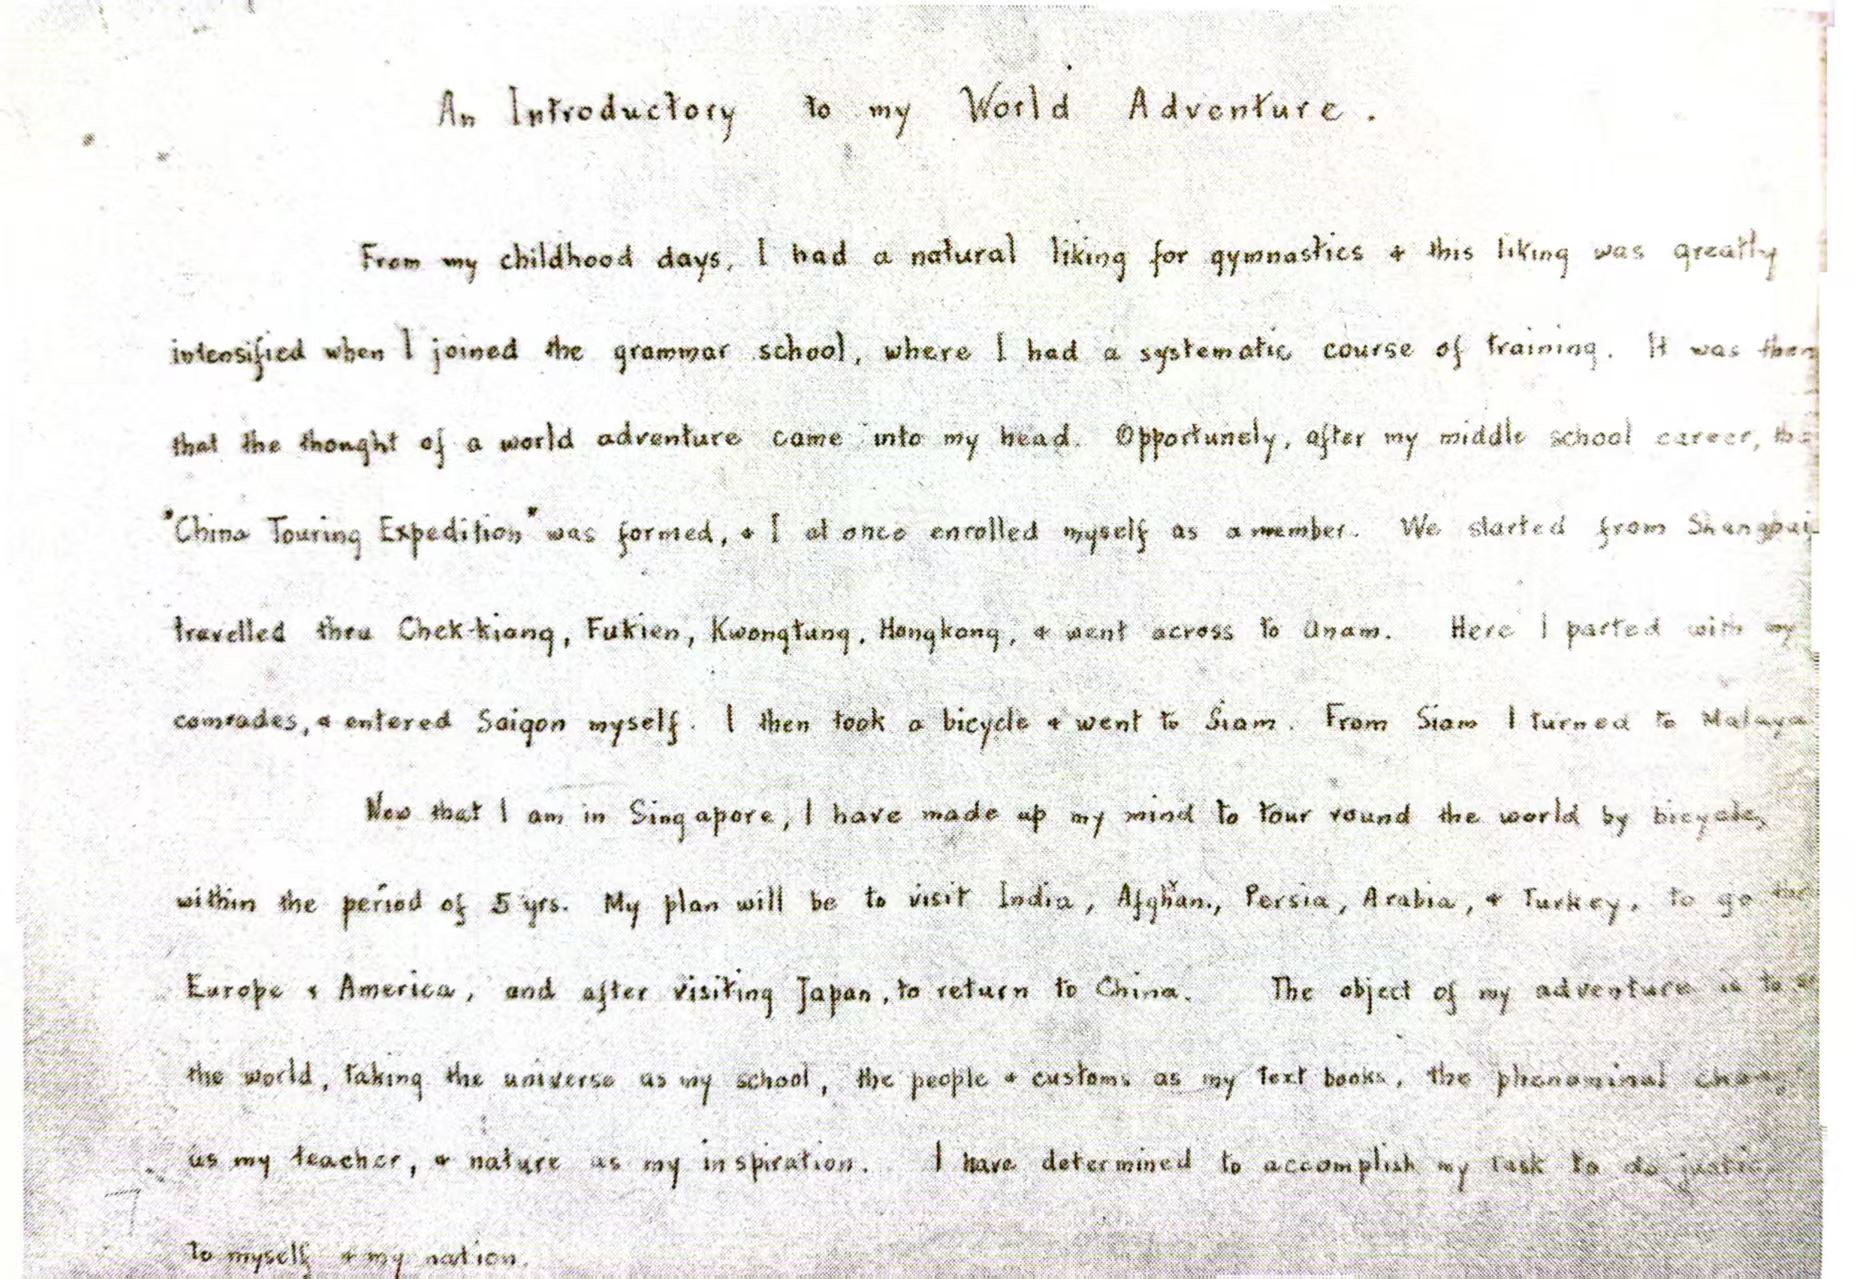 An Introductory to my World Adventure.
From my childhood days, I had a natural liking for gymnastics & this liking was greatly
intensified when I joined the grammar school, where I had a systematic course of training. It was then
that the thought of a world adventure came into my head. Opportunely, after my middle school career, the
"China Touring Expedition" was formed, & I at once enrolled myself as a member. We started from Shanghai
travelled thru Chek-kiang, Fukien, Kwongtung, Hongkong, & went across to Anam. Here I parted with my
comrades, & entered Saigon myself. I then took a bicycle & went to Siam. From Siam I turned to Malaya
Now that I am in Singapore, I have made up my mind to tour round the world by bicycle,
within the period of 5 yrs. My plan will be to visit India, Afghan., Persia, Arabia, & Turkey, to go thr
Europe & America, and after visiting Japan, to return to China. The object of my adventure is to
the world, taking the universe as my school, the people & customs as my text books, the phenominal
as my teacher, & nature as my inspiration. I have determined to accomplish my task to do justic
to myself & my nation.